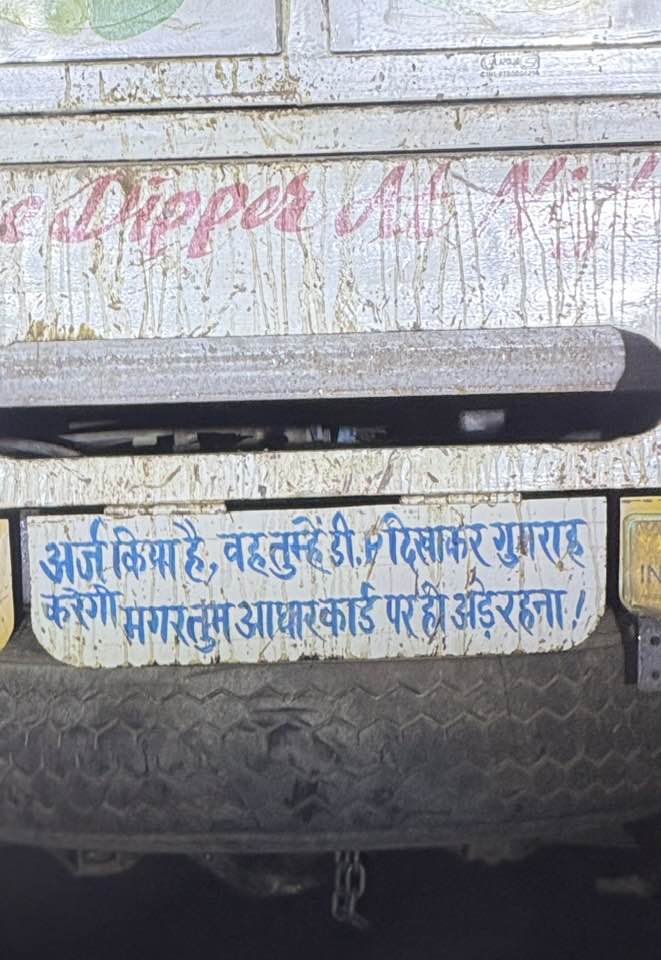 Dipper At
अर्ज किया है, वह तुम्हें डी.P दिखाकर गुमराह
करेगी मगर तुम आधार कार्ड पर ही अड़े रहना !
IN